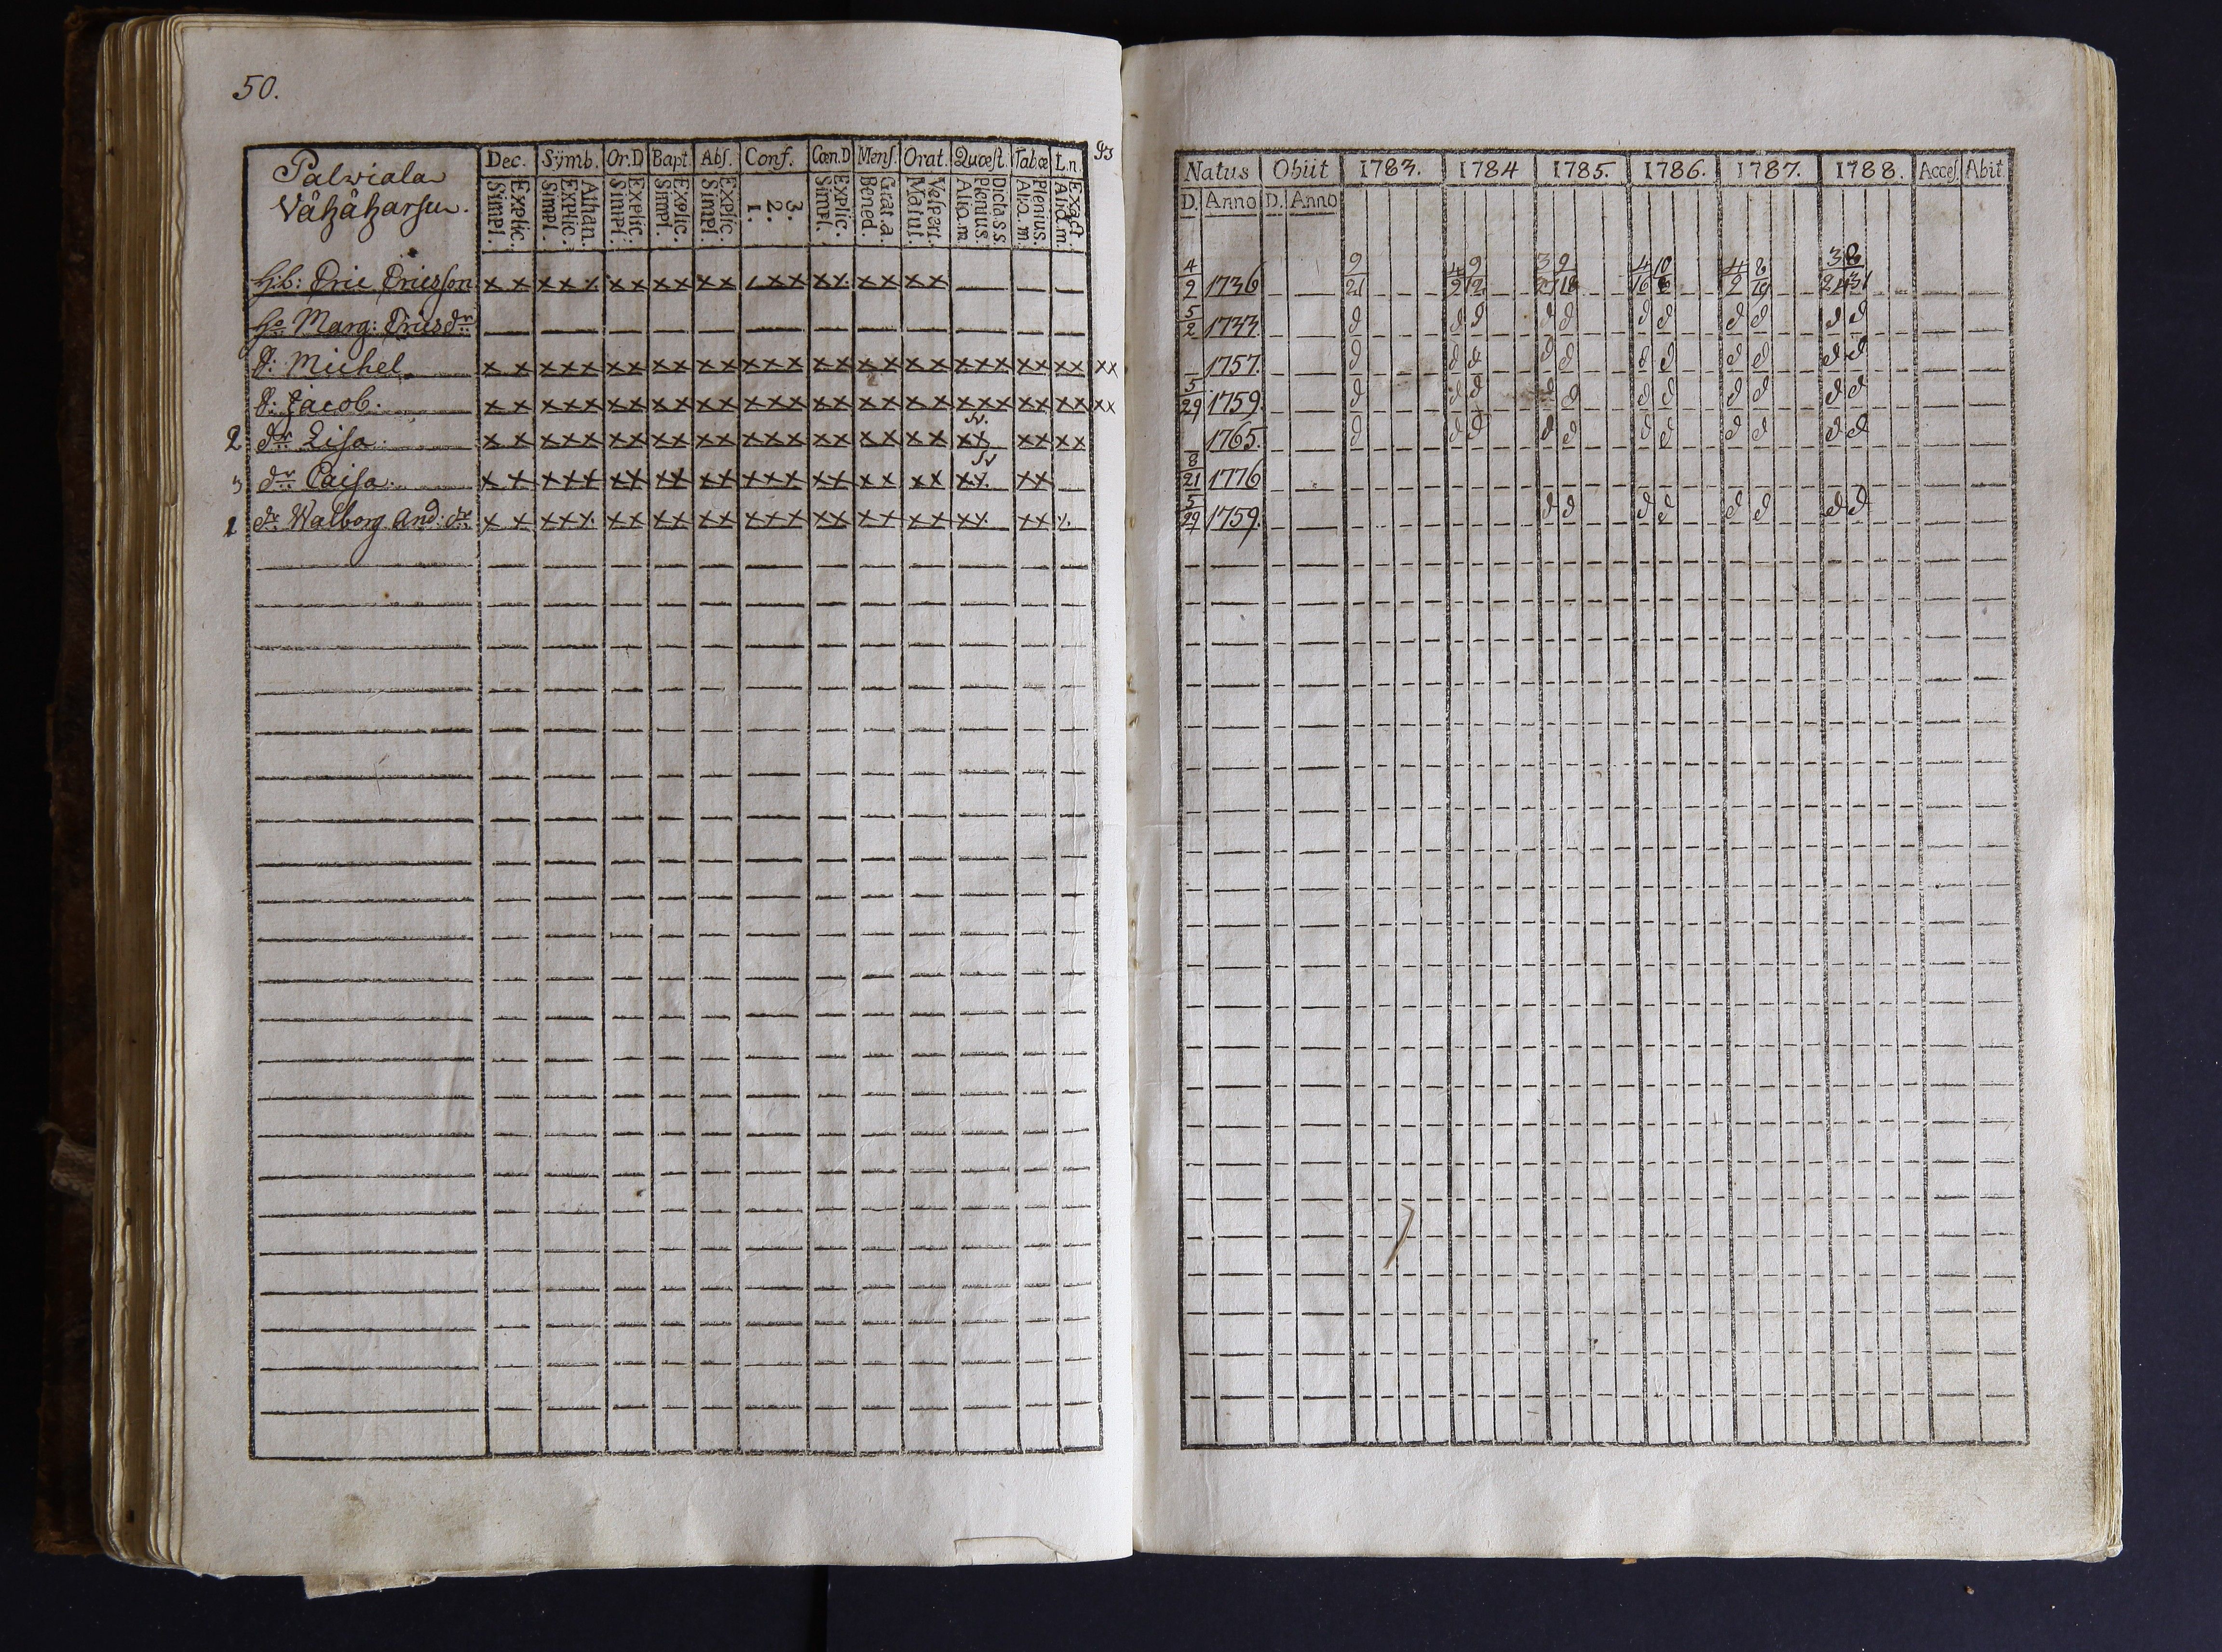 50.
Palviala
Vähäharju.
Dec. Sÿmb. Or.D Bapt. Abſ. Conf. Cœn.D Menſ. Orat. Quœſt. Tab.œ L.n.
Explic. Simpl. Athan. Explic. Simpl. Explic. Simpl. Explic. Simpl. Explic. Simpl. 3. 2. 1. Explic. Simpl. Grat.a. Bened. Veſpert. Matut. Dicta.s.s. Plenius. Aliq.m Plenius. Aliq.m. Exact. Aliq.m.
H.b: Eric Ericsson x x x x x x x x x x x x x x x x x x x x
Ha Marg: Ericsdr
S: Michel x x x x x x x x x x x x x x x x x x x x x x x x x x x x x x
S: Jacob. x x x x x x x x x x x x x x x x x x x x x x x x x x x x x x
2 dr Lisa x x x x x x x x x x x x x x x x x x x x x x x x x x
3 dr Caisa x x x x x x x x x x x x x x x x x x x x x x x x
1 dr Walborg And: dr x x x x x x x x x x x x x x x x x x x x x x x x x
Natus Obiit 1783. 1784 1785. 1786. 1787. 1788. Acceſ. Abit.
D. Anno D. Anno
4/2 1736 9/21 4/2 9/12 3/27 9/18 4/16 10/8 4/2 8/19 3/24 8/31
5/2 1733. d d d d d d d d d d d
1757. d d d d d d d d d d d
5/29 1759. d d d d d d d d d d d
1765. d d d d d d d d d d d
8/21 1776
5/29 1759. d d d d d d d d